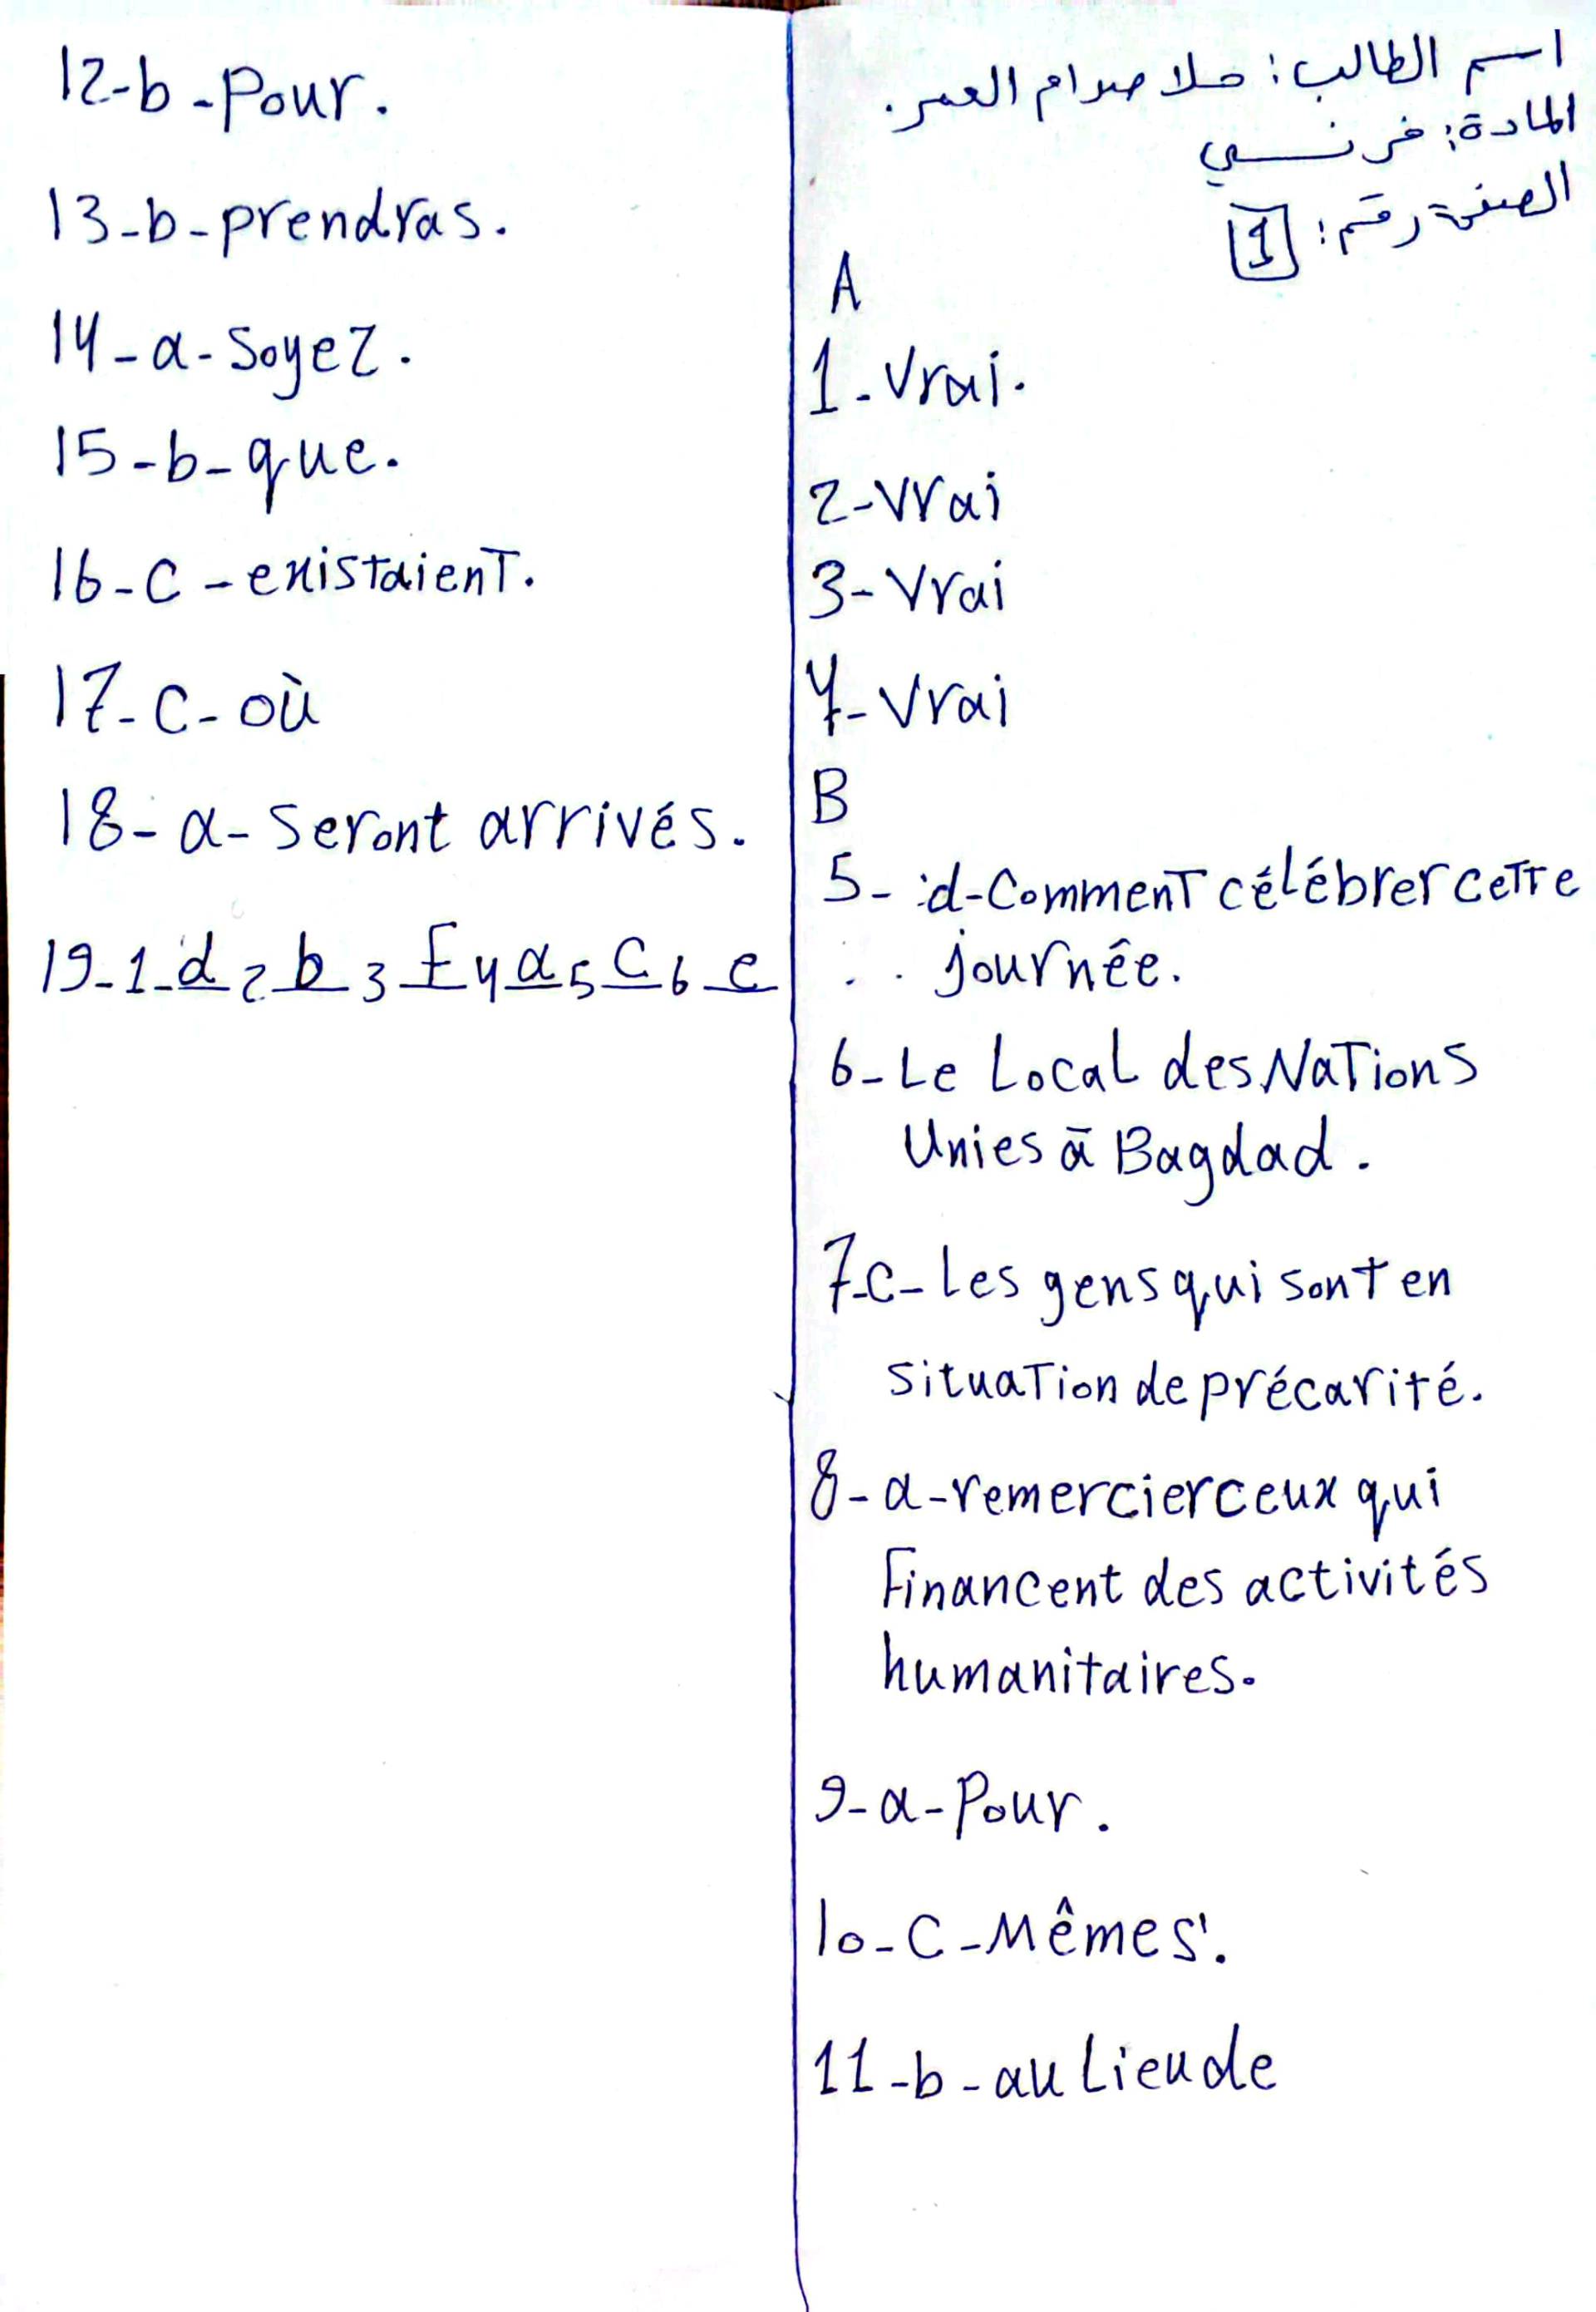 اسم الطالب: حلا صدام العمر.
المادة: فرنسي
الصفحة رقم: 1
A
1-Vrai.
2-Vrai
3-Vrai
4-Vrai
B
5-:d-Comment célébrer cette
journée.
6-Le Local des Nations
Unies à Bagdad.
7-c-Les gens qui sont en
situation de précarité.
8-a-remercier ceux qui
Financent des activités
humanitaires.
9-a-Pour.
10-C-Mêmes.
11-b-au Lieu de
12-b-Pour.
13-b-prendras.
14-a-Soyez.
15-b-que.
16-C-existaient.
17-C-où
18-a-Seront arrivés.
19-1-d 2 b 3 F 4 a 5 C 6 e